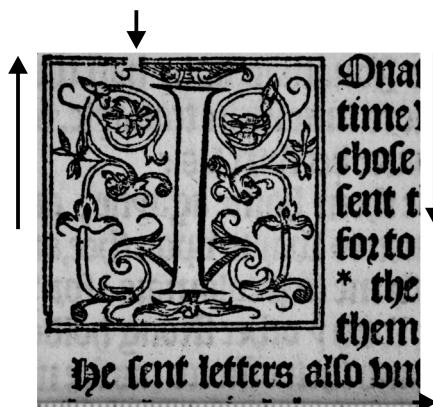 IOnat
time
choſe
ſent t
foꝛ to
* the
them
He ſent letters alſo vnt